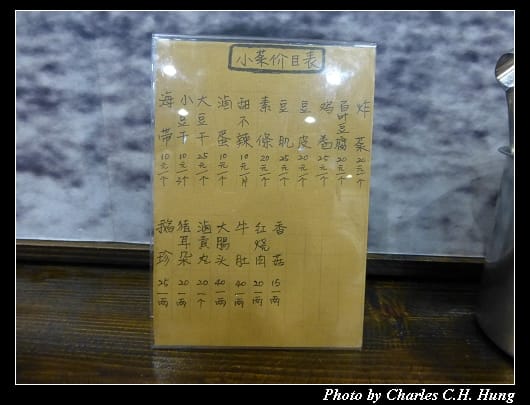 小菜价目表
炸菜 20元一个
百叶豆腐 20元一个
鸡卷 25元一个
豆皮 20元一个
豆肌 25元一个
素條 20元一个
甜不辣 10元一片
滷蛋 10元一个
大豆干 25元一个
小豆干 10元
海带 10元一个
香菇 15一両
红烧肉 20一両
牛肚 40一両
大腸头 40一両
滷貢丸 20一个
猪耳朵 20一両
鵝珍 25一両
Photo by Charles C.H. Hung